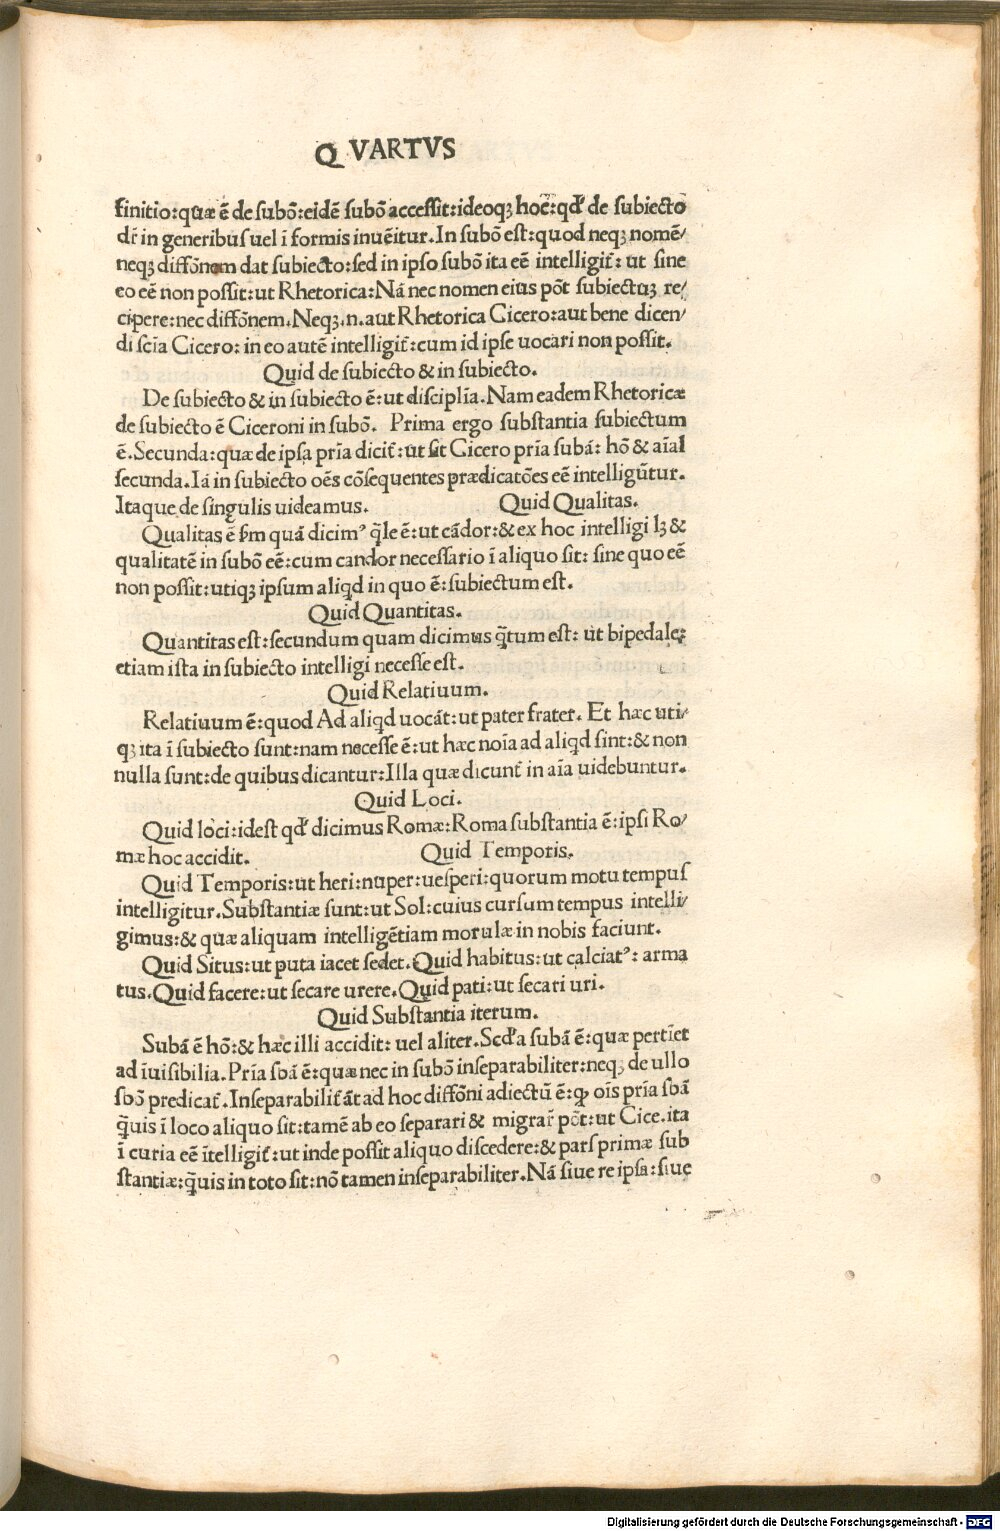 Q VARTVS
finitio:quæ ē de subō:eidē subō accessit:ideoqꝫ hoc̄:qđ de subiecto
dr̄ in generibus uel ī formis inuēitur.In subō est:quod neqꝫ nomē/
neqꝫ diffōnem dat subiecto:sed in ipso subō ita eē intelligit̄: ut sine
eo eē non possit:ut Rhetorica:Nā nec nomen eius pōt subiectuꝫ re/
cipere:nec diffōnem.Neqꝫ.n.aut Rhetorica Cicero:aut bene dicen/
di scīa Cicero: in eo autē intelligit̄:cum id ipse uocari non possit.
Quid de subiecto & in subiecto.
De subiecto & in subiecto ē:ut disciplīa.Nam eadem Rhetoricæ
de subiecto ē Ciceroni in subō. Prima ergo substantia subiectum
ē.Secunda:quæ de ipsa prīa dicit̄:ut sit Cicero prīa subā: hō & aīal
secunda.Iā in subiecto oēs cōsequentes prædicatōes eē intelligūtur.
Itaque de singulis uideamus. Quid Qualitas.
Qualitas ē ẜm quā dicimꝰ q̄le ē:ut cādor:& ex hoc intelligi lꝫ &
qualitatē in subō eē:cum candor necessario ī aliquo sit: sine quo eē
non possit:utiqꝫ ipsum aliqd in quo ē:subiectum est.
Quid Quantitas.
Quantitas est:secundum quam dicimus q̄tum est: ut bipedale:
etiam ista in subiecto intelligi necesse est.
Quid Relatiuum.
Relatiuum ē:quod Ad aliqd uocāt:ut pater frater. Et hæc uti/
qꝫ ita ī subiecto sunt:nam necesse ē:ut hæc noīa ad aliqd sint:& non
nulla sunt:de quibus dicantur:Illa quæ dicunt̄ in aīa uidebuntur.
Quid Loci.
Quid loci:idest qđ dicimus Romæ:Roma substantia ē:ipsi Ro/
mæ hoc accidit. Quid Temporis.
Quid Temporis:ut heri:nuper:uesperi:quorum motu tempus
intelligitur.Substantiæ sunt:ut Sol:cuius cursum tempus intelli/
gimus:& quæ aliquam intelligētiam morulæ in nobis faciunt.
Quid Situs:ut puta iacet sedet.Quid habitus:ut calciatꝰ: arma
tus.Quid facere:ut secare urere.Quid pati:ut secari uri.
Quid Substantia iterum.
Subā ē hō:& hæc illi accidit: uel aliter.Scđa subā ē:quæ pertīet
ad īuisibilia.Prīa sbā ē:quæ nec in subō inseparabiliter:neqꝫ de ullo
sbō predicat̄.Inseparabilit̄ āt ad hoc diffōni adiectū ē:ꝙ oīs prīa sbā
q̄uis ī loco aliquo sit:tamē ab eo separari & migrar̄ pōt:ut Cice.ita
ī curia eē ītelligit̄:ut inde possit aliquo discedere:& pars primæ sub
stantiæ:q̄uis in toto sit:nō tamen inseparabiliter.Nā siue re ipsa:siue
Digitalisierung gefördert durch die Deutsche Forschungsgemeinschaft - DFG